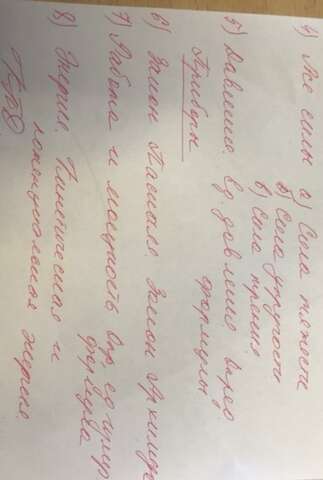 4) Все силы а) Сила тяжести
б) Сила упругости
в) Сила трения
5) Давление. Ед. давление
формулы
Приборы
6) Закон Паскаля. Закон Архимеда
7) Работа и мощность ед. измер
формула
8) Энергия. Кинетическая и
потенциальная энергия.